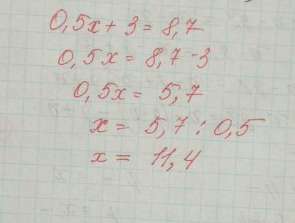 0,5x + 3 = 8,7
0,5x = 8,7 - 3
0,5x = 5,7
x = 5,7 : 0,5
x = 11,4